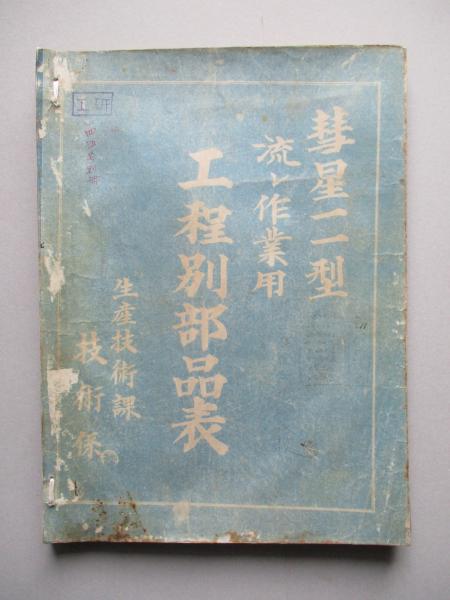 彗星一一型
流レ作業用
工程別部品表
生産技術課
技術係
工研